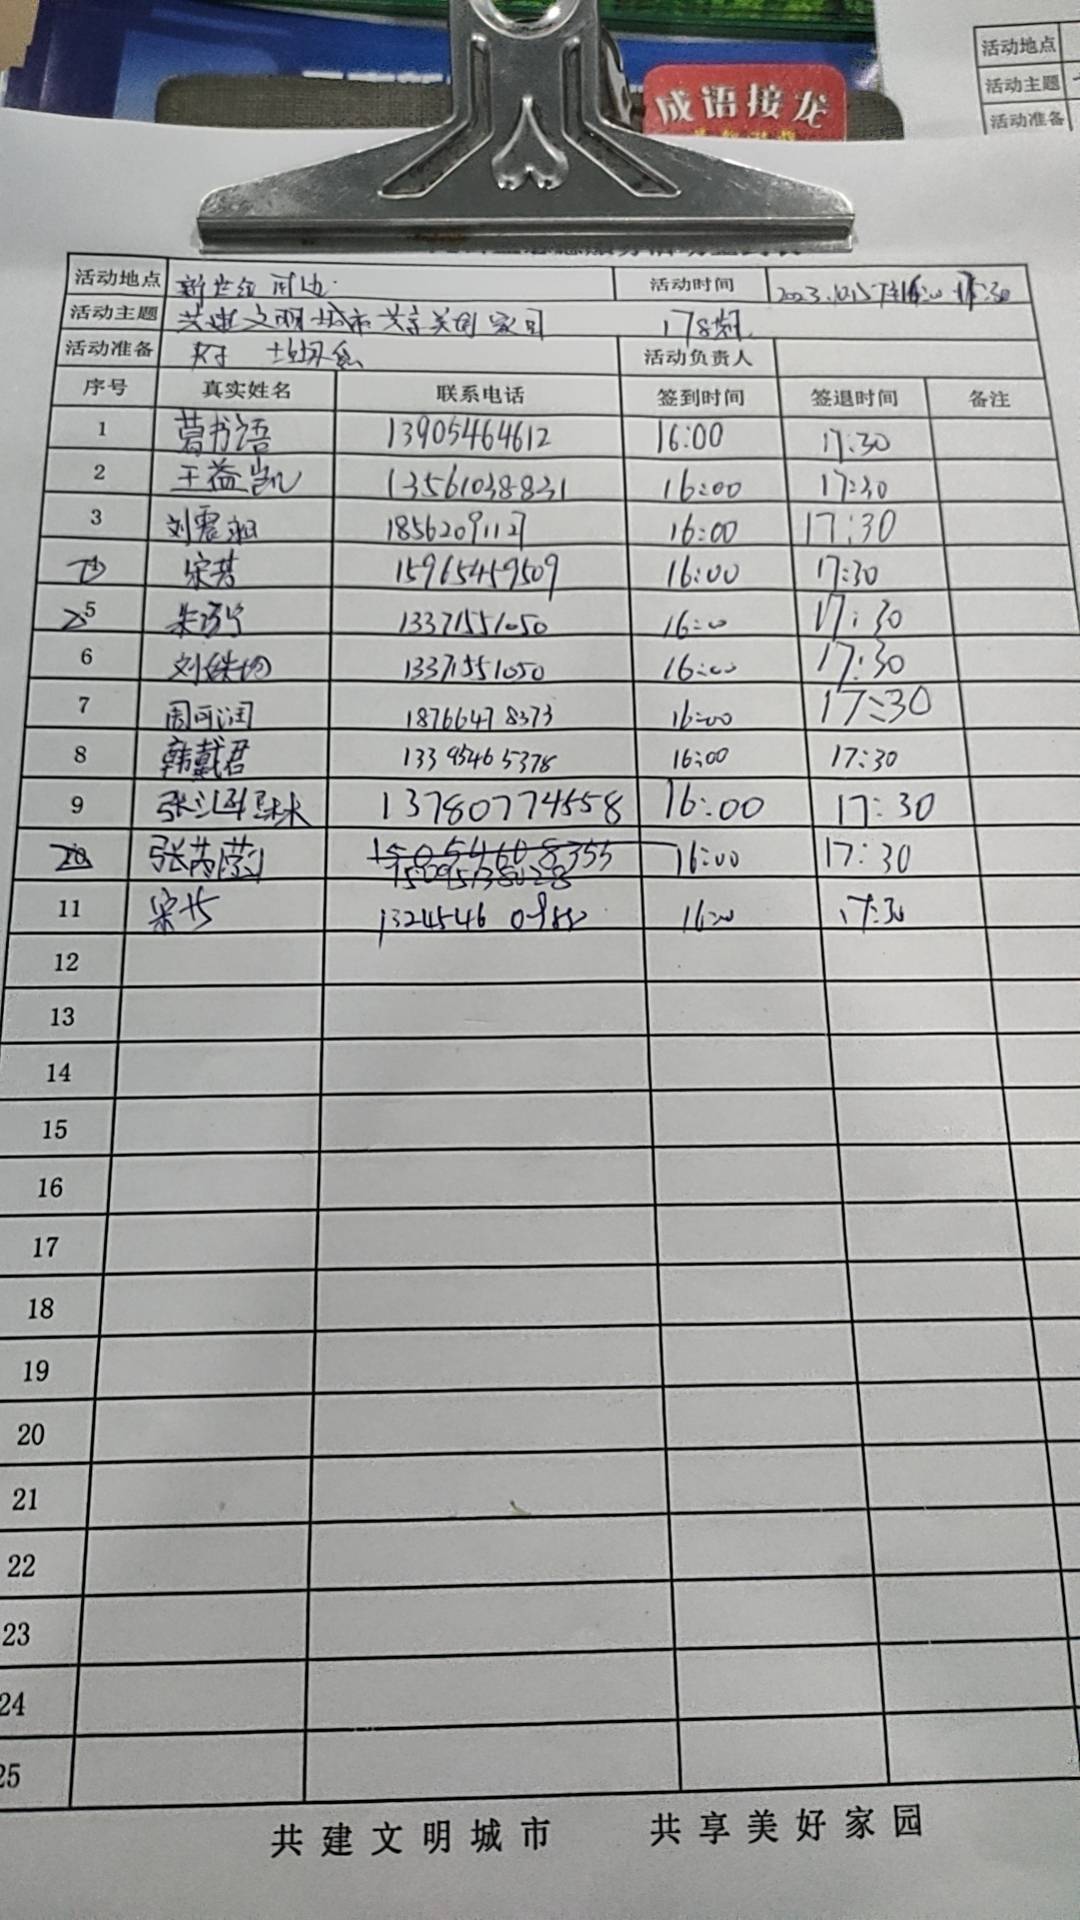 成语接龙
活动地点
活动主题
活动准备
活动地点 新世纪周边 活动时间 2023.10.15下午16:00-17:30
活动主题 共建文明城市共享美好家园 178期
活动准备 夹子 垃圾袋 活动负责人
序号 真实姓名 联系电话 签到时间 签退时间 备注
1 葛书语 13905464612 16:00 17:30
2 王益凯 13561038831 16:00 17:30
3 18562091127 16:00 17:30
宋芳 15965459509 16:00 17:30
5 13371551050 16:00 17:30
6 13371551050 16:00 17:30
7 周可润 18766478373 16:00 17:30
8 韩戴君 13395465378 16:00 17:30
9 13780774558 16:00 17:30
10 15054608355 16:00 17:30
11 16:00 17:30
12
13
14
15
16
17
18
19
20
21
22
23
24
25
共建文明城市 共享美好家园